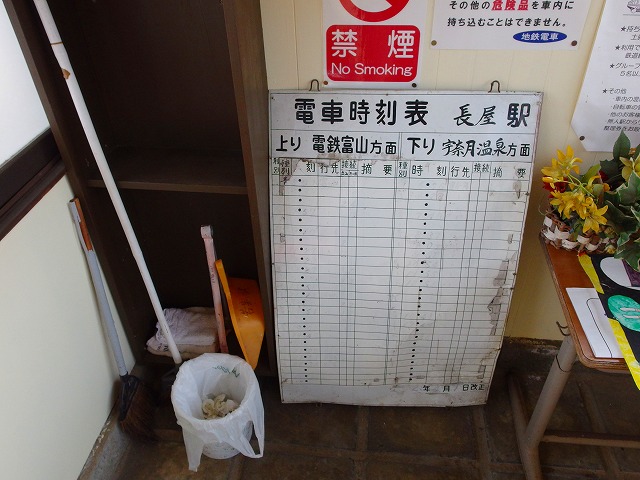 その他の危険品を車内に
持ち込むことはできません。
地鉄電車
禁煙
No Smoking
電車時刻表 長屋駅
上り 電鉄富山方面 下り 宇奈月温泉方面
種別 時 刻 行先 接続 摘要 種別 時 刻 行先 接続 摘要
年 月 日改正
★その他